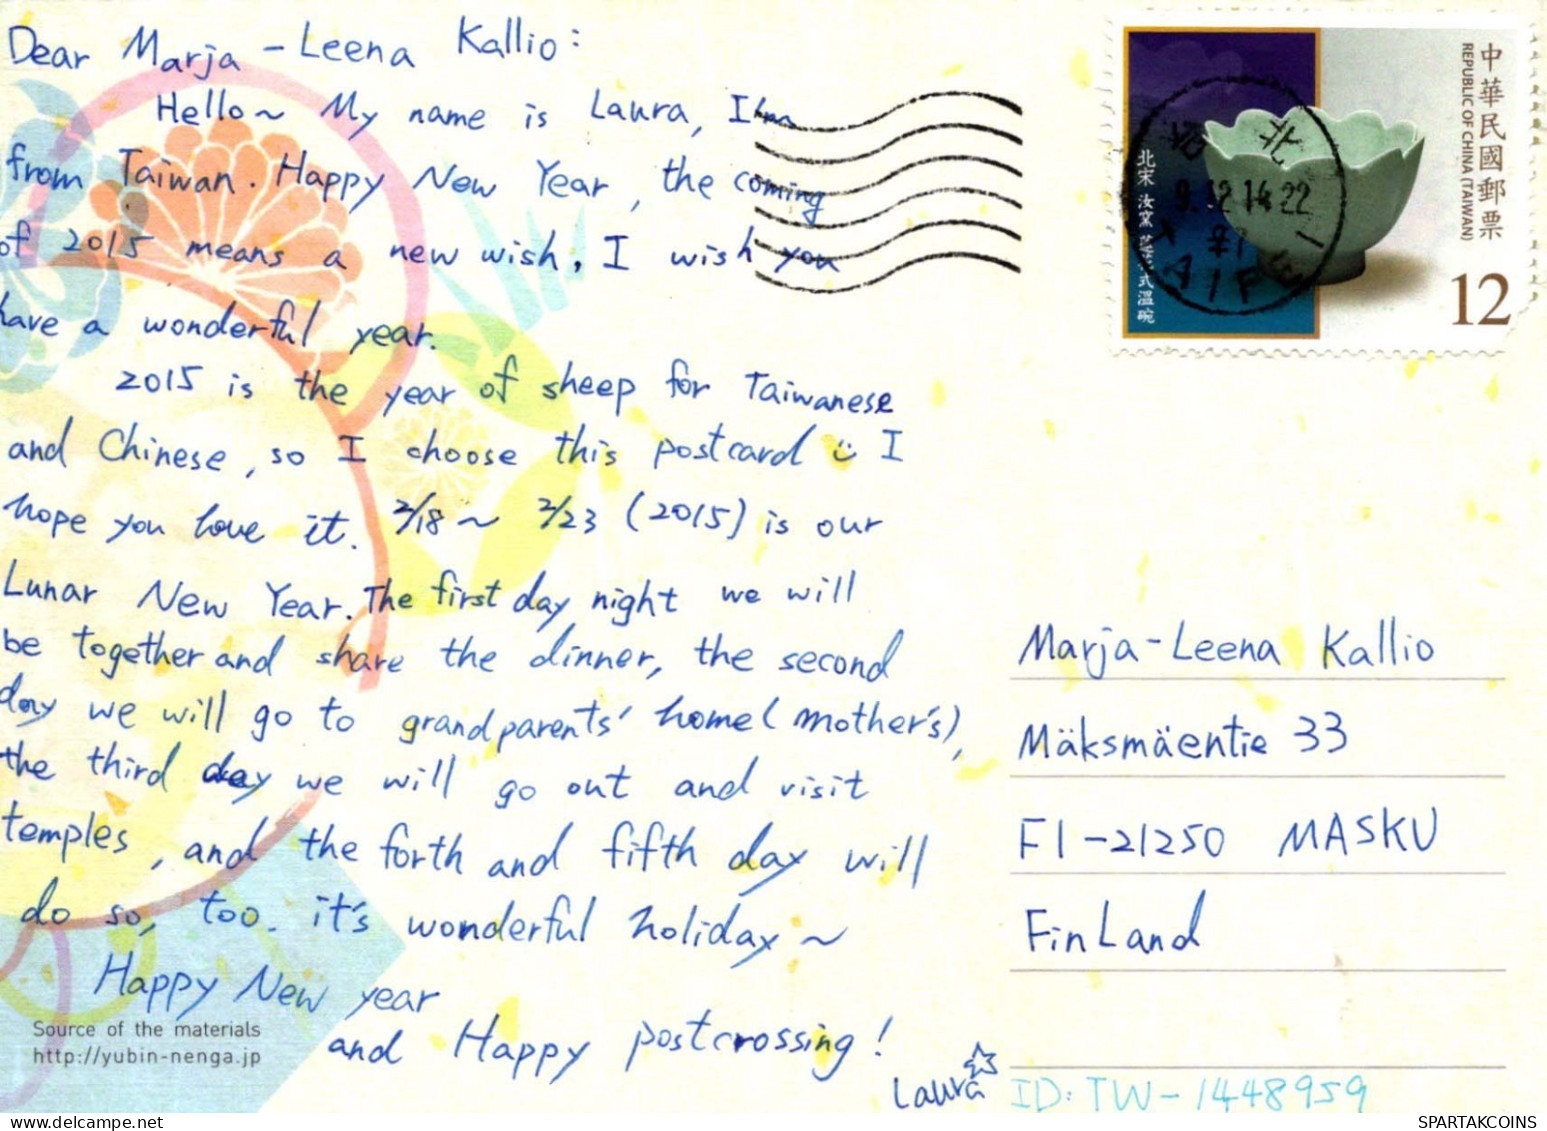 Dear Marja-Leena Kallio:
Hello~ My name is Laura, I'm
from Taiwan. Happy New Year, the coming
of 2015 means a new wish, I wish you
have a wonderful year.
2015 is the year of sheep for Taiwanese
and Chinese, so I choose this postcard I
hope you love it. 2/18 ~ 2/23 (2015) is our
Lunar New Year. The first day night we will
be together and share the dinner, the second
day we will go to grandparents' home (mother's),
the third day we will go out and visit
temples, and the forth and fifth day will
do so, too. it's wonderful holiday ~
Happy New year
and Happy postcrossing!
Laura
Source of the materials
http://yubin-nenga.jp
中華民國郵票
REPUBLIC OF CHINA (TAIWAN)
12
北宋 汝窯 式溫碗
北
14 22
TAIPEI
Marja-Leena Kallio
Mäksmäentie 33
FI-21250 MASKU
FinLand
ID: TW-1448959
SPARTAKCOINS